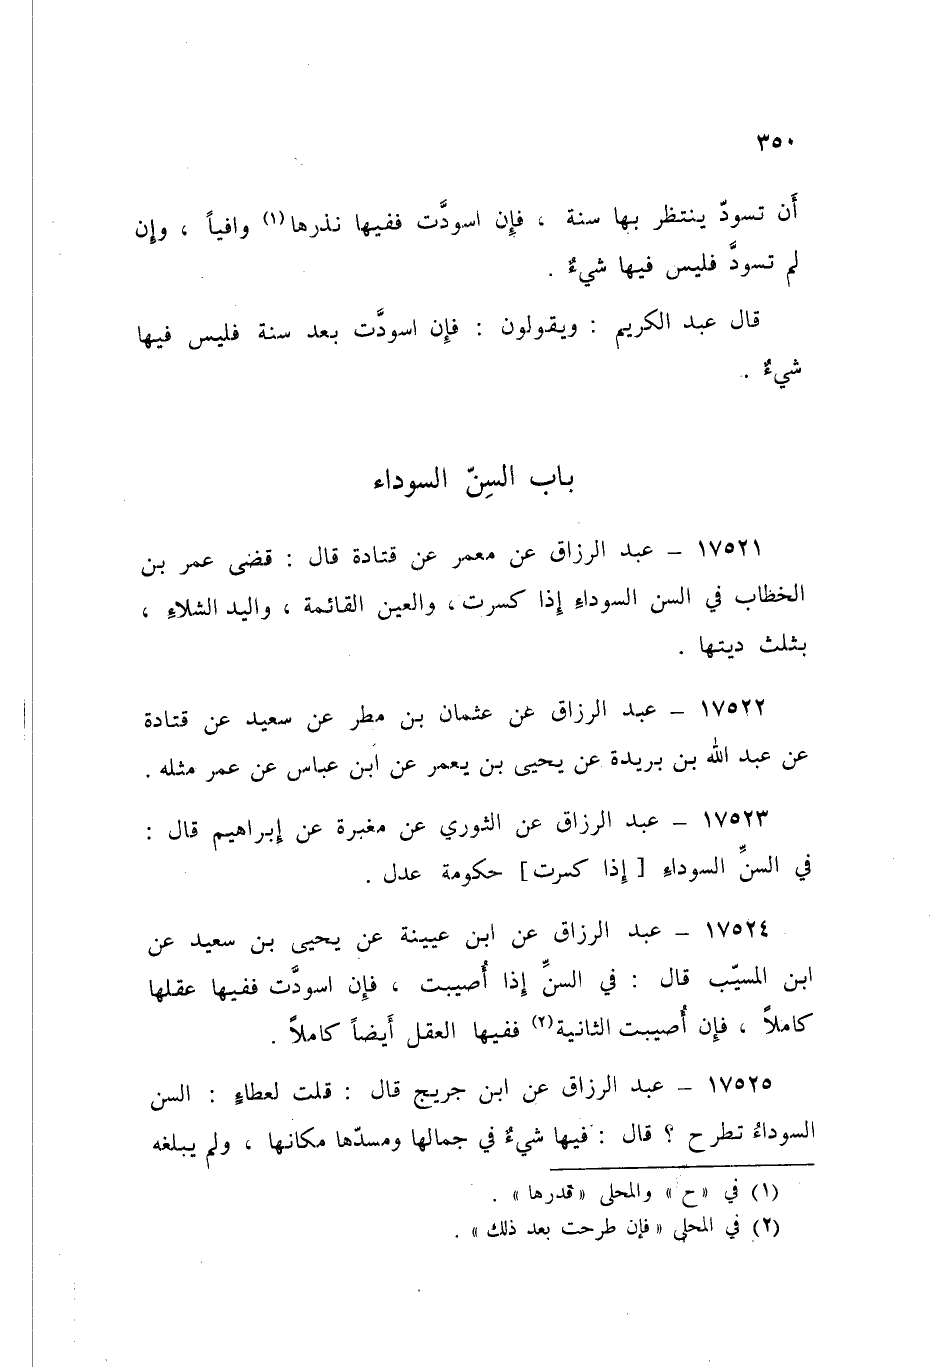 ٣٥٠
أَن تسودّ ينتظر بها سنة ، فإن اسودَّت ففيها نذرها(١) وافياً ، وإن
لم تسودَّ فليس فيها شيءٌ .
قال عبد الكريم : ويقولون : فإن اسودَّت بعد سنة فليس فيها
شيءٌ .
باب السِنّ السوداء
١٧٥٢١ – عبد الرزاق عن معمر عن قتادة قال : قضى عمر بن
الخطاب في السن السوداءِ إذا كسرت ، والعين القائمة ، واليد الشلاءِ ،
بثلث ديتها .
١٧٥٢٢ – عبد الرزاق عن عثمان بن مطر عن سعيد عن قتادة
عن عبد الله بن بريدة عن يحيى بن يعمر عن ابن عباس عن عمر مثله .
١٧٥٢٣ – عبد الرزاق عن الثوري عن مغيرة عن إبراهيم قال :
في السنِّ السوداءِ [ إذا كسرت ] حكومة عدل .
١٧٥٢٤ – عبد الرزاق عن ابن عيينة عن يحيى بن سعيد عن
ابن المسيّب قال : في السنِّ إذا أُصيبت ، فإن اسودَّت ففيها عقلها
كاملاً ، فإن أُصيبت الثانية(٢) ففيها العقل أَيضاً كاملاً .
١٧٥٢٥ – عبد الرزاق عن ابن جريج قال : قلت لعطاءٍ : السن
السوداءُ تطرح ؟ قال : فيها شيءٌ في جمالها ومسدّها مكانها ، ولم يبلغه
(١) في «ح» والمحلى «قدرها» .
(٢) في المحلى «فإن طرحت بعد ذلك» .